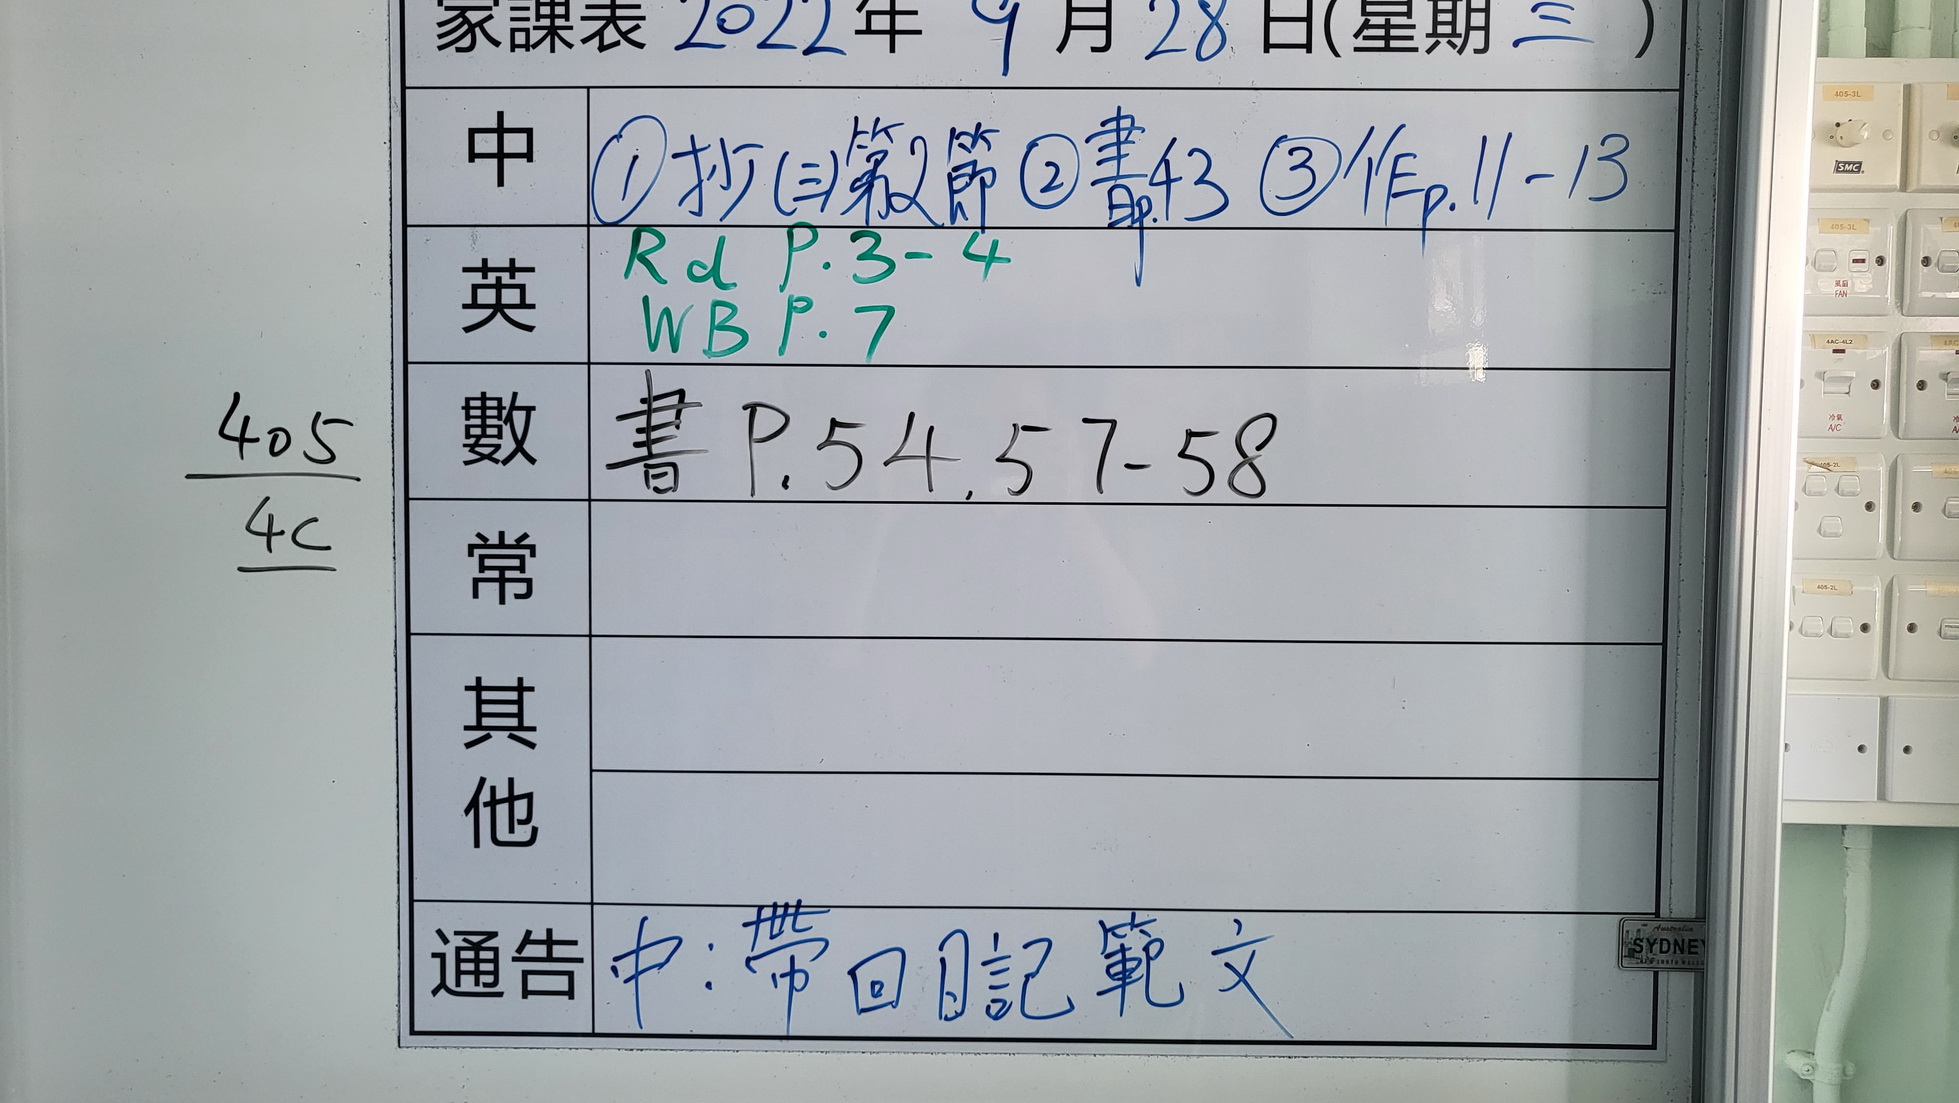 家課表 2022年 9月 28日(星期三)
中 ①抄(三)第2節 ②書p.43 ③作p.11-13
英 Rd P.3-4
WB P.7
數 書 P.54,57-58
常
其他
通告 中:帶回日記範文
405
4C
405-3L
SMC
405-3L
風扇
FAN
4AC-4L2
冷氣
A/C
405-2L
405-2L
Australia
SYDNEY